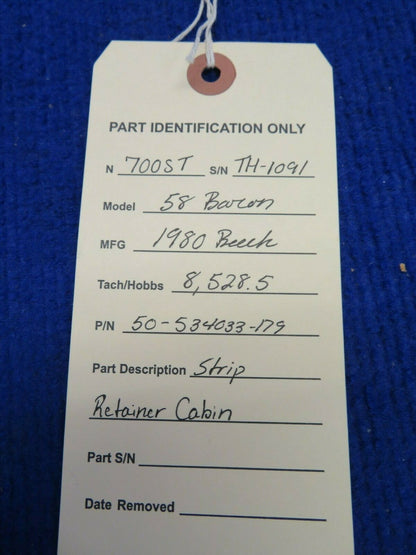 PART IDENTIFICATION ONLY
N 700ST S/N TH-1091
Model 58 Baron
MFG 1980 Beech
Tach/Hobbs 8,528.5
P/N 50-534033-179
Part Description Strip
Retainer Cabin
Part S/N
Date Removed